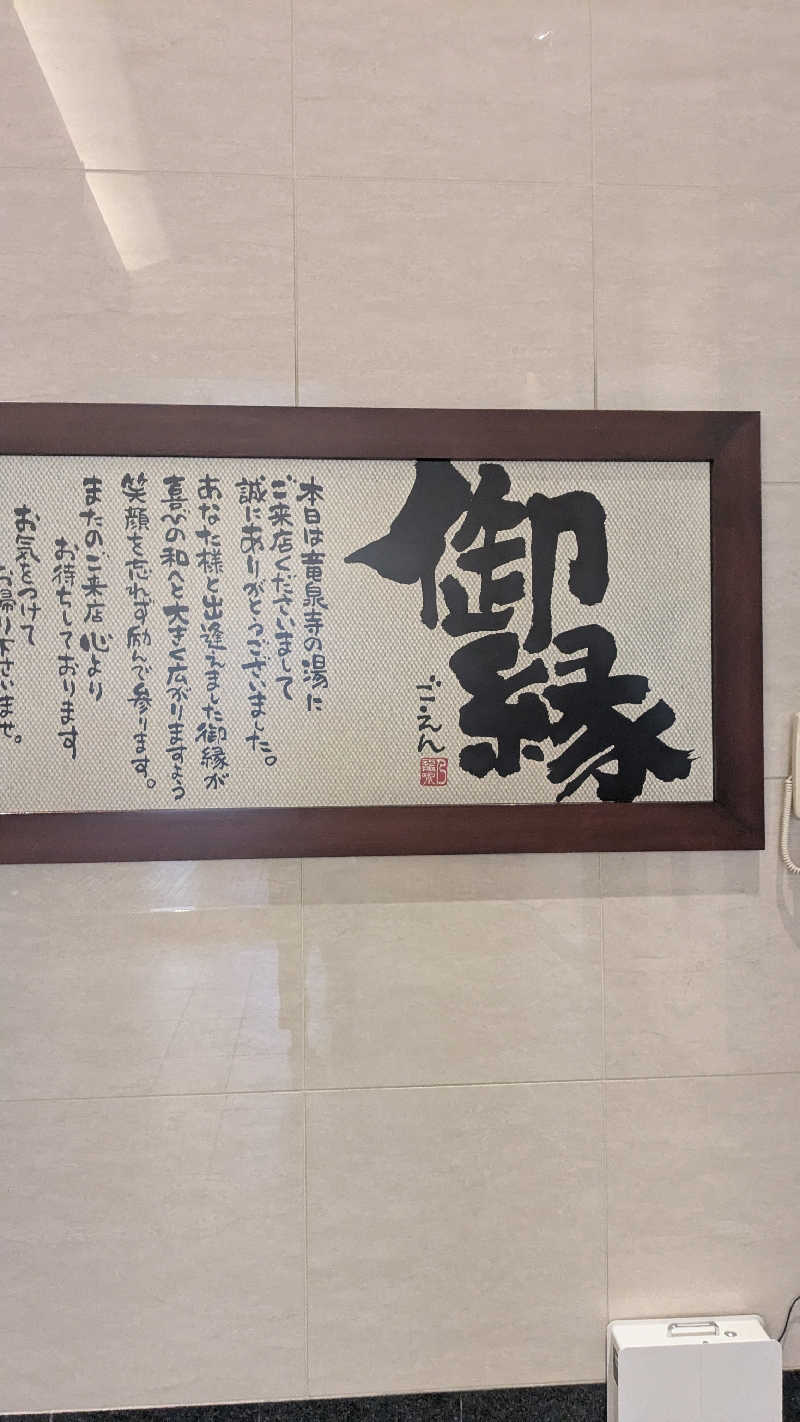 御縁
ご・えん
本日は竜泉寺の湯に
ご来店くださいまして
誠にありがとうございました。
あなた様と出逢えました御縁が
喜びの和へと大きく広がりますよう
笑顔を忘れず励んで参ります。
またのご来店 心より
お待ちしております
お気をつけて
お帰り下さいませ。